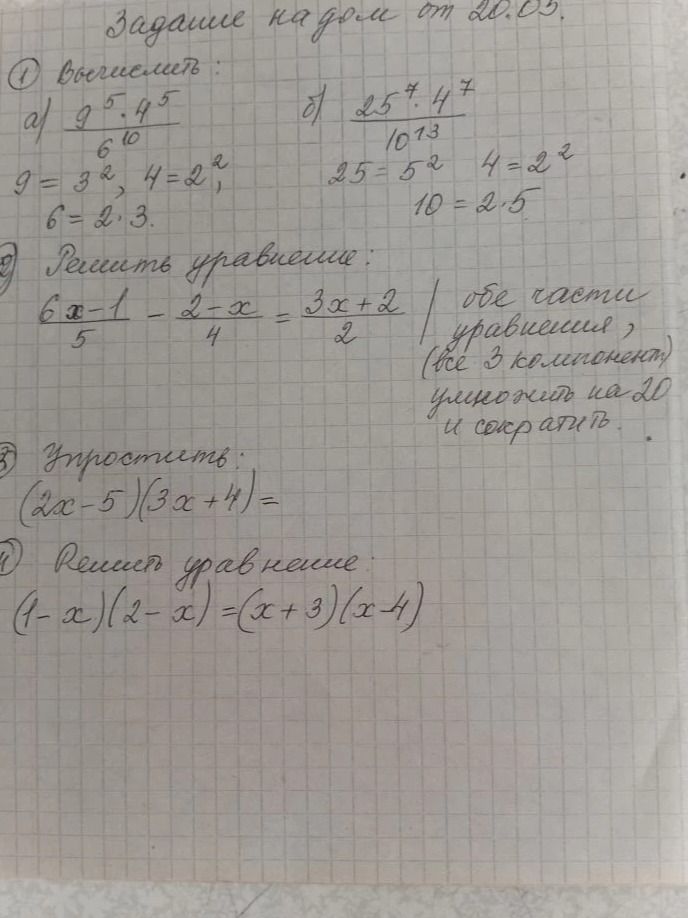 Задание на дом от 20.05.
① Вычислить:
а) (9⁵·4⁵)/6¹⁰ б) (25⁷·4⁷)/10¹³
9 = 3², 4 = 2², 25 = 5² 4 = 2²
6 = 2·3. 10 = 2·5
② Решить уравнение:
(6x-1)/5 - (2-x)/4 = (3x+2)/2 | обе части
уравнения,
(все 3 компонент)
умножить на 20
и сократить.
③ Упростить:
(2x-5)(3x+4)=
④ Решить уравнение:
(1-x)(2-x)=(x+3)(x-4)